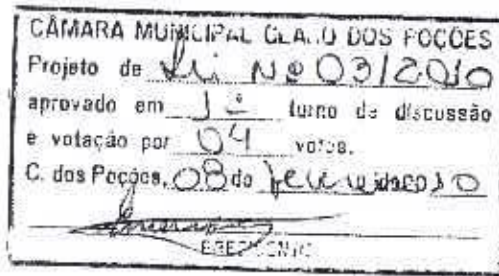 CÂMARA MUNICIPAL CLARO DOS POÇÕES
Projeto de Lei Nº 03/2010
aprovado em 1º turno de discussão
e votação por 04 votos.
C. dos Poções, 08 de fevereiro de 2010
PRESIDENTE